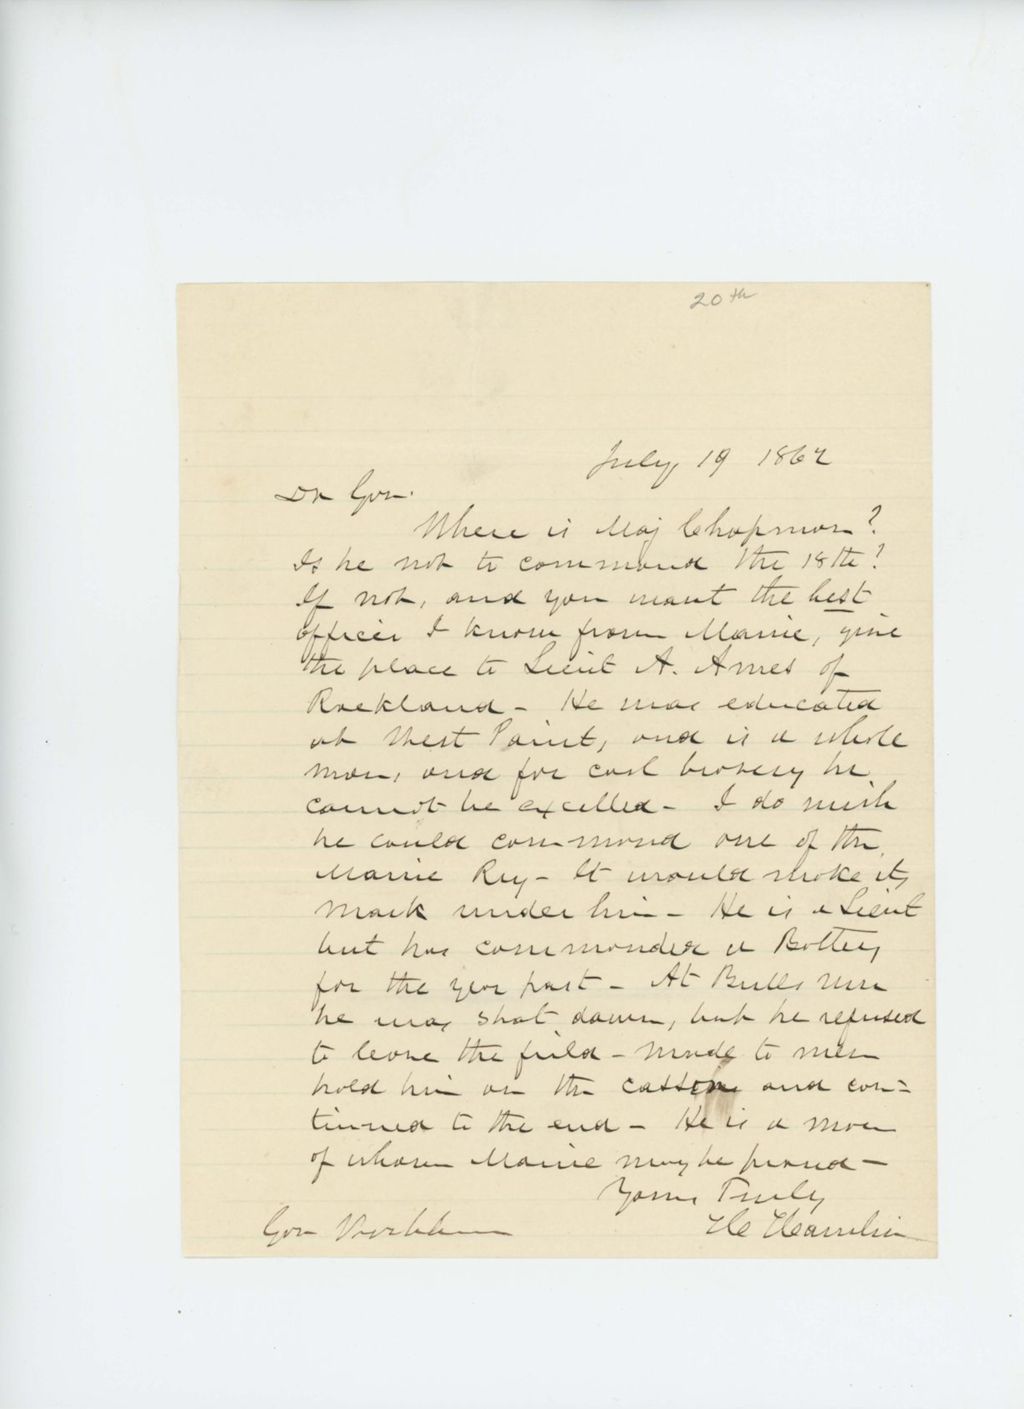 20th
July 19 1862
Dr Gov.
Where is Maj Chapman?
Is he not to command the 18th?
If not, and you want the best
officer I know from Maine, give
the place to Lieut A. Ames of
Rockland - He was educated
at West Point, and is a whole
man, and for cool bravery he
cannot be excelled - I do wish
he could command one of the
Maine Reg - It would make its
mark under him - He is a Lieut
but has commanded a Battery
for the year past - At Bulls run
he was shot down, but he refused
to leave the field - made to men
hold him on the caisson and con=
tinued to the end - He is a man
of whom Maine may be proud -
Yours Truly
H Hamlin
Gov Washburn